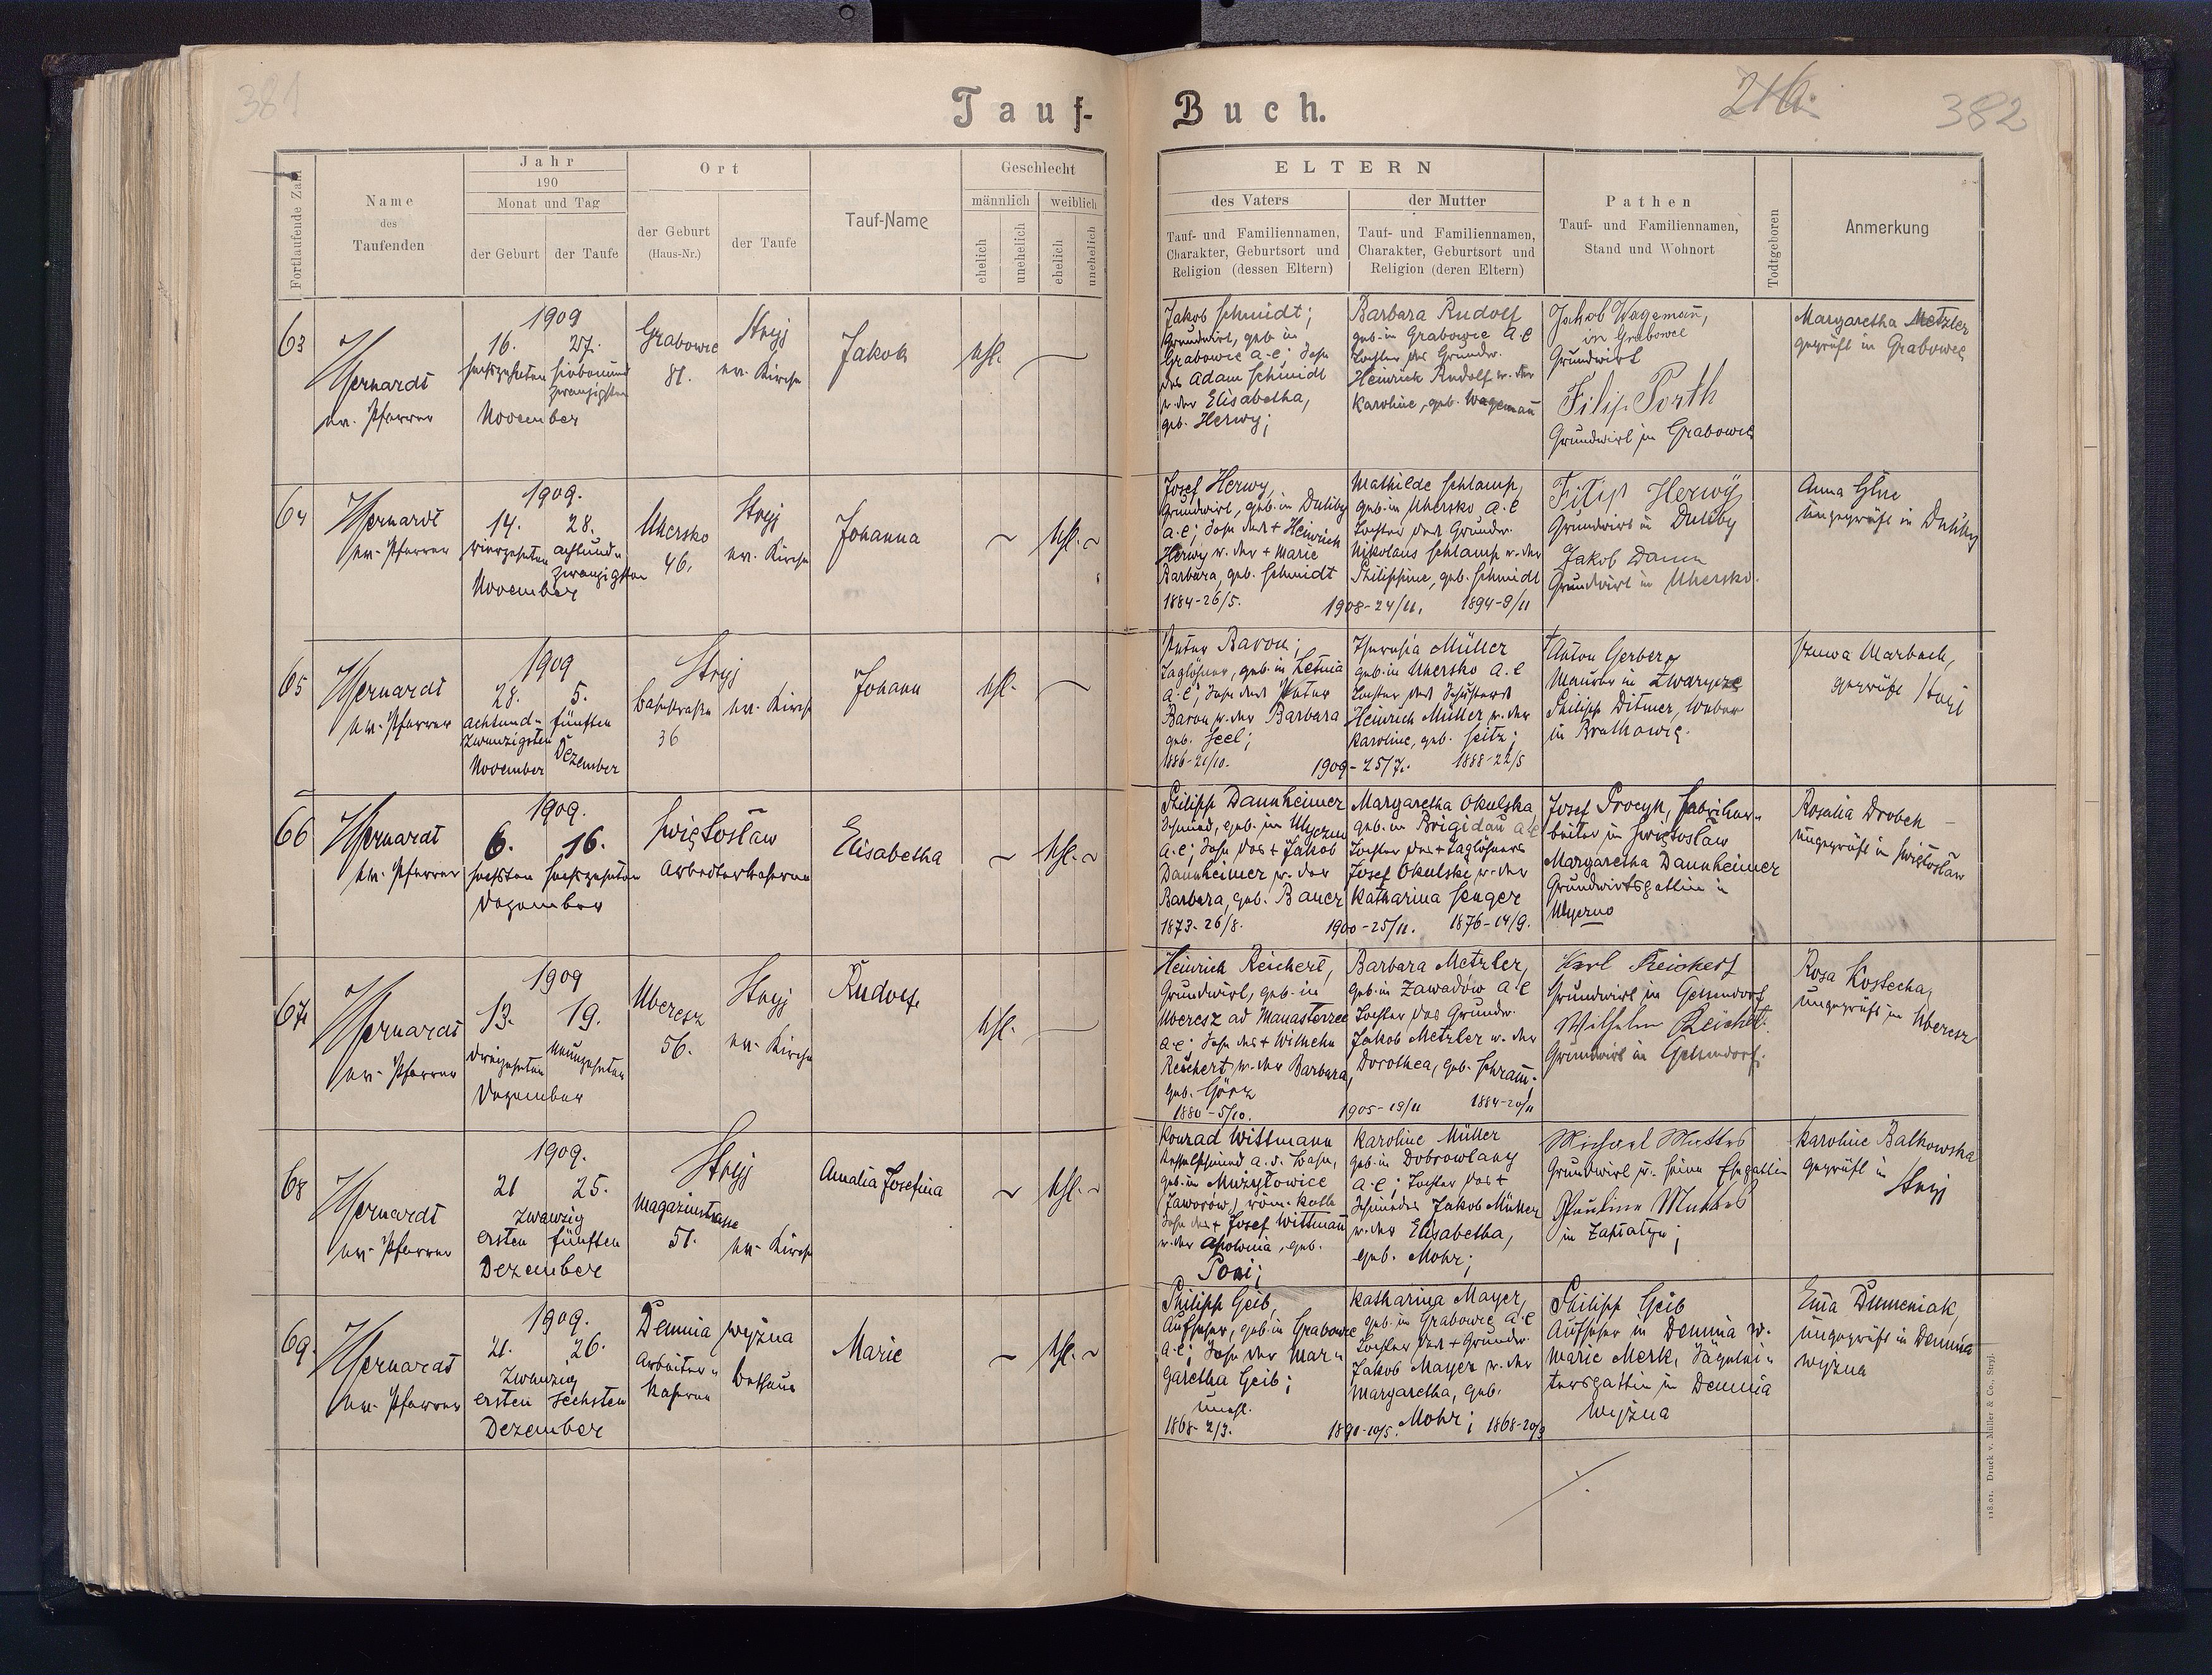 381
Tauf-
Buch.
21b.
382
Fortlaufende Zahl
Name
des
Taufenden
Jahr
190
Monat und Tag
der Geburt
der Taufe
Ort
der Geburt
(Haus-Nr.)
der Taufe
Tauf-Name
Geschlecht
männlich
weiblich
ehelich
unehelich
ehelich
unehelich
ELTERN
des Vaters
Tauf- und Familiennamen,
Charakter, Geburtsort und
Religion (dessen Eltern)
der Mutter
Tauf- und Familiennamen,
Charakter, Geburtsort und
Religion (deren Eltern)
Pathen
Tauf- und Familiennamen,
Stand und Wohnort
Todtgeboren
Anmerkung
63
ev. Pfarrer
1909
16. 27.
sechzehnten siebenund
zwanzigsten
November
Grabowce
81.
Stryj
ev. Kirche
Jakob
ehl.
Jakob Schmidt;
Grundwirt, geb. in
Grabowce a.c; Sohn
des Adam Schmidt
u. der Elisabetha,
geb. Herwy;
Barbara Rudolf
geb. in Grabowce a.c
Tochter des Grundw.
Heinrich Rudolf u. der
Karoline, geb. Wagemañ
Jakob Wagemañ,
in Grabowce
Grundwirt
Filip Porth
Grundwirt in Grabowce
Margaretha Metzler
geprüft in Grabowce
64
ev. Pfarrer
1909.
14. 28.
vierzehnten achtund-
zwanzigsten
November
Uhersko
46.
Stryj
ev. Kirche
Johanna
ehl.
Josef Herwy,
Grundwirt, geb. in Duliby
a.c; Sohn des + Heinrich
Herwy u. der + Marie
Barbara, geb. Schmidt
1884-26/5.
1908-24/11.
Mathilde Schlamp,
geb. in Uhersko a.c
Tochter des Grundw.
Nikolaus Schlamp u. der
Philippine, geb. Schmidt
1894-9/11
Filip Herwÿ
Grundwirt in Duliby
Jakob Damm
Grundwirt in Uhersko.
Anna
ungeprüft in Duliby
65
ev. Pfarrer
1909
28. 5.
achtund- fünften
zwanzigsten
November Dezember
Stryj
Bahnstraße
36
ev. Kirche
Johann
ehl.
Peter Baron;
Taglöhner, geb. in Letnia
a.c; Sohn des Peter
Baron u. der Barbara
geb. Seel;
1886-21/10.
1909-25/7.
Theresia Müller
geb. in Uhersko a.c
Tochter des Schusters
Heinrich Müller u. der
Karoline, geb. Seitz;
1888-22/5
Anton Gerber,
Maurer in Zwarycze
Philipp Ditmer, Weber
in Bratkowce.
Marbach,
geprüft Stryj
66
ev. Pfarrer
1909.
6. 16.
sechsten sechzehnten
Dezember
Swiętosław
Arbeiterkaserne
Elisabetha
ehl.
Philipp Dannheimer
Schmied, geb. in Ugerna
a.c; Sohn des + Jakob
Dannheimer u. der
Barbara, geb. Bauer
1873-26/8.
1900-25/11.
Margaretha Okulska
geb. in Brigidau a.c
Tochter des + Taglöhners
Josef Okulski u. der
Katharina Senger
1876-14/9.
Josef Procyk, Fabrikar-
beiter in Swiętosław
Margaretha Dannheimer
Grundwirtsgattin in
Ugerno
Rosalia Drobek
ungeprüft in Swiętosław
67
ev. Pfarrer
1909
13. 19.
dreizehnten neunzehnten
Dezember
Uberesz
56.
Stryj
ev. Kirche
Rudolf
ehl.
Heinrich Reichert,
Grundwirt, geb. in
Uberesz ad Manasterzec
a.c; Sohn des + Wilhelm
Reichert u. der Barbara,
geb. Görz
1880-5/10.
1905-19/11
Barbara Metzler,
geb. in Zawadów a.c
Tochter des Grundw.
Jakob Metzler u. der
Dorothea, geb. Schram̄;
1884-20/11
Karl Reichert
Grundwirt in Gelsendorf
Wilhelm Reichert.
Grundwirt in Gelsendorf.
Rosa Kostecha,
ungeprüft in Uberesz
68
ev. Pfarrer
1909.
21 25.
zwanzig
ersten fünften
Dezember
Stryj
Magazinstrasse
51.
ev. Kirche
Amalia Josefina
ehl.
Konrad Wittmann
Kesselschmied a.d. Bahn,
geb. in Mużyłowice
(Jaworów) röm. kath
Sohn des + Josef Wittmañ
u. der Apolonia, geb.
Karoline Müller
geb. in Dobrowlany
a.c; Tochter des +
Schmiedes Jakob Müller
u. der Elisabetha,
geb. Mohr;
Michael Muttes
Grundwirt u. seine Ehegattin
Pauline Muttes
in Zaplatyn;
Karoline Balkowska
geprüft in
Stryj
69.
ev. Pfarrer
1909.
21. 26.
Zwanzig
ersten sechsten
Dezember
Demnia wyżna
Arbeiter-
Kaserne
Bethaus
Marie
ehl.
Philipp Geib,
Aufseher, geb. in Grabowce
a.c; Sohn der Mar-
garetha Geib;
unehl.
1868-2/3.
1891-10/5.
Katharina Mayer,
geb. in Grabowce a.c
Tochter des + Grundw.
Jakob Mayer u. der
Margaretha, geb.
Mohr; 1868-20/9
Philipp Geib
Aufseher in Demnia w.
Marie Merk, Sägelei-
tersgattin in Demnia
wyżna
Em̄a Dumeniak,
ungeprüft in Demnia
wyżna
118.01. Druck v. Müller & Co., Stryj.